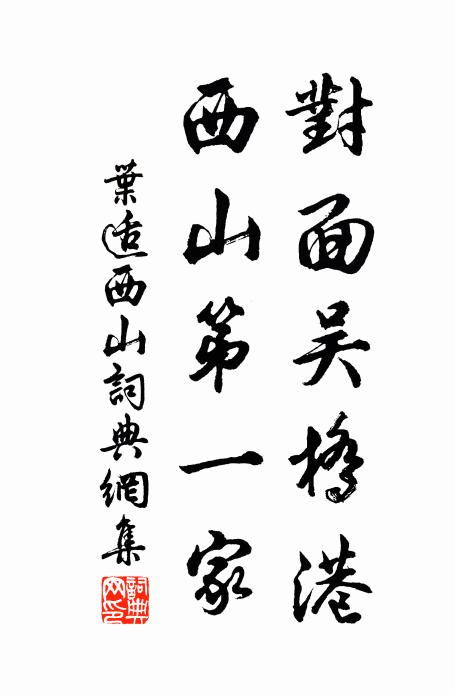 對面吴橋港
西山第一家
葉适西山詞典網集
詞典網印